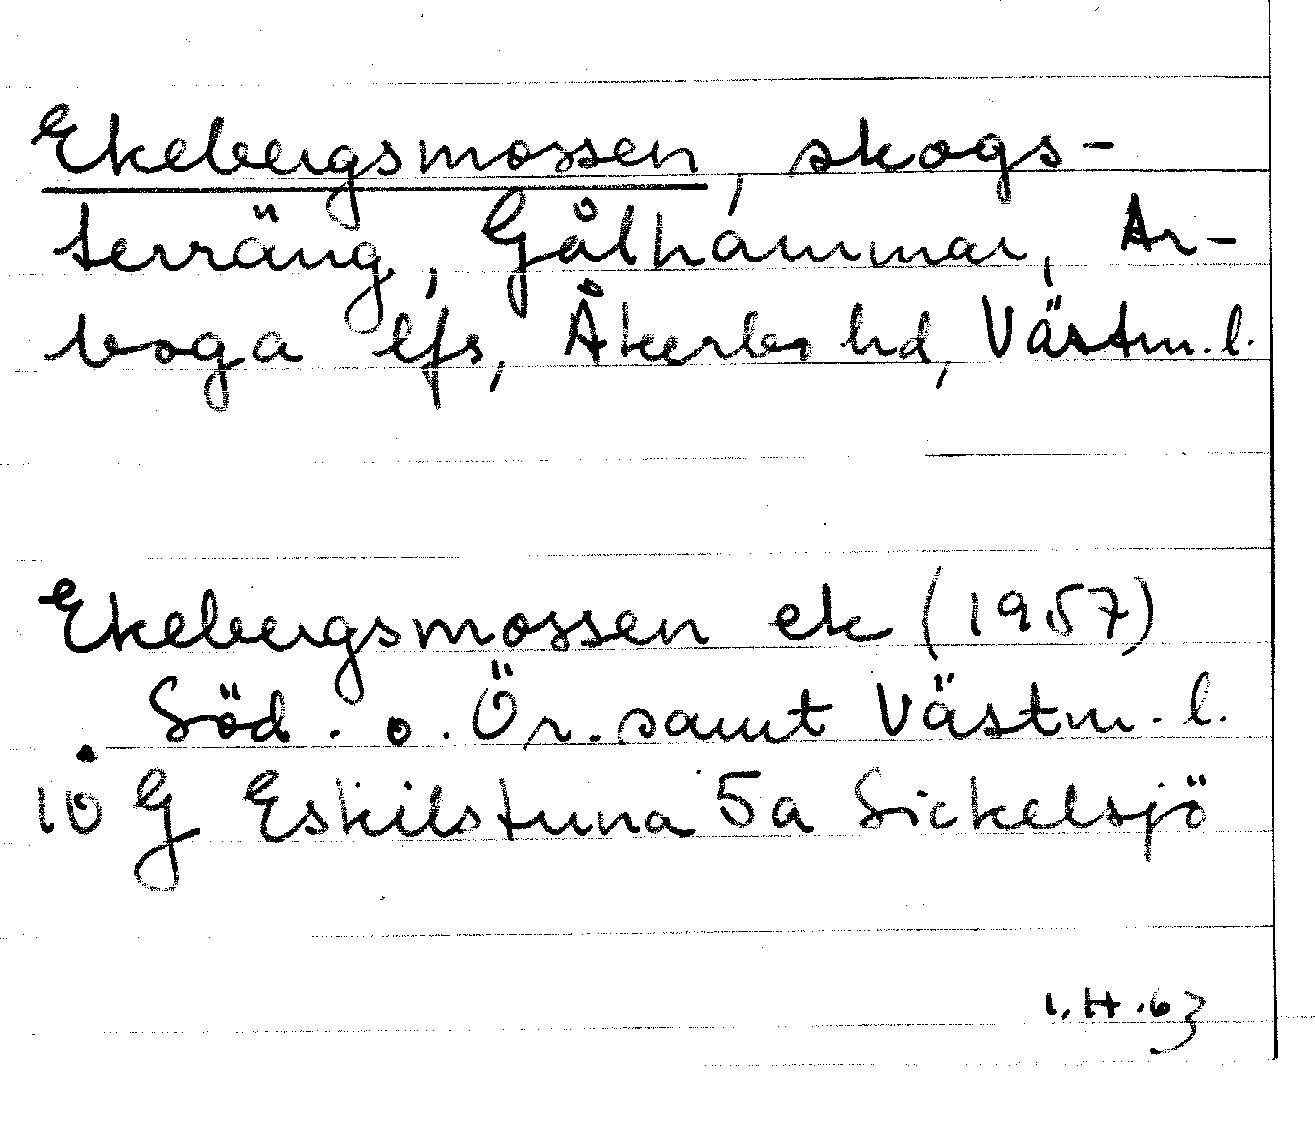 Ekebergsmossen, skogs-
terräng, Gålhammar, Ar-
boga lfs, Åkerbo hd, Västm.l.
Ekebergsmossen ek (1957)
Söd. o. Ör. samt Västm.l.
10 G Eskilstuna 5a Sickelsjö
I.H.63